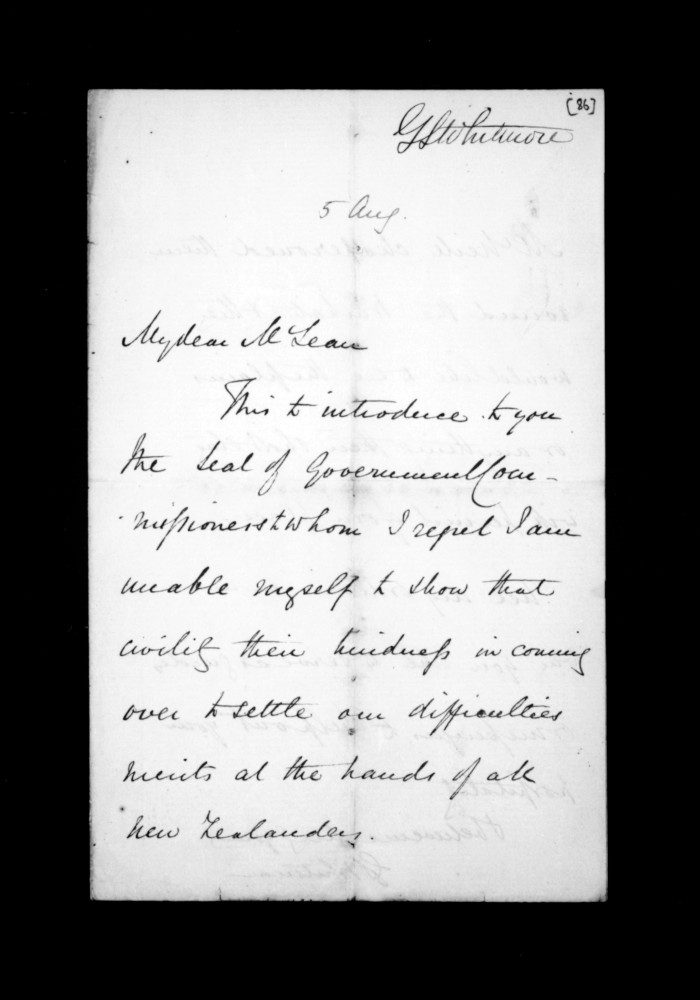 [86]
GSWhitmore
5 Aug.
My dear McLean
This to introduce to you
the Seat of Government Com-
missioners to whom I regret I am
unable myself to show that
civility their kindness in coming
over to settle our difficulties
merits at the hands of all
New Zealanders.